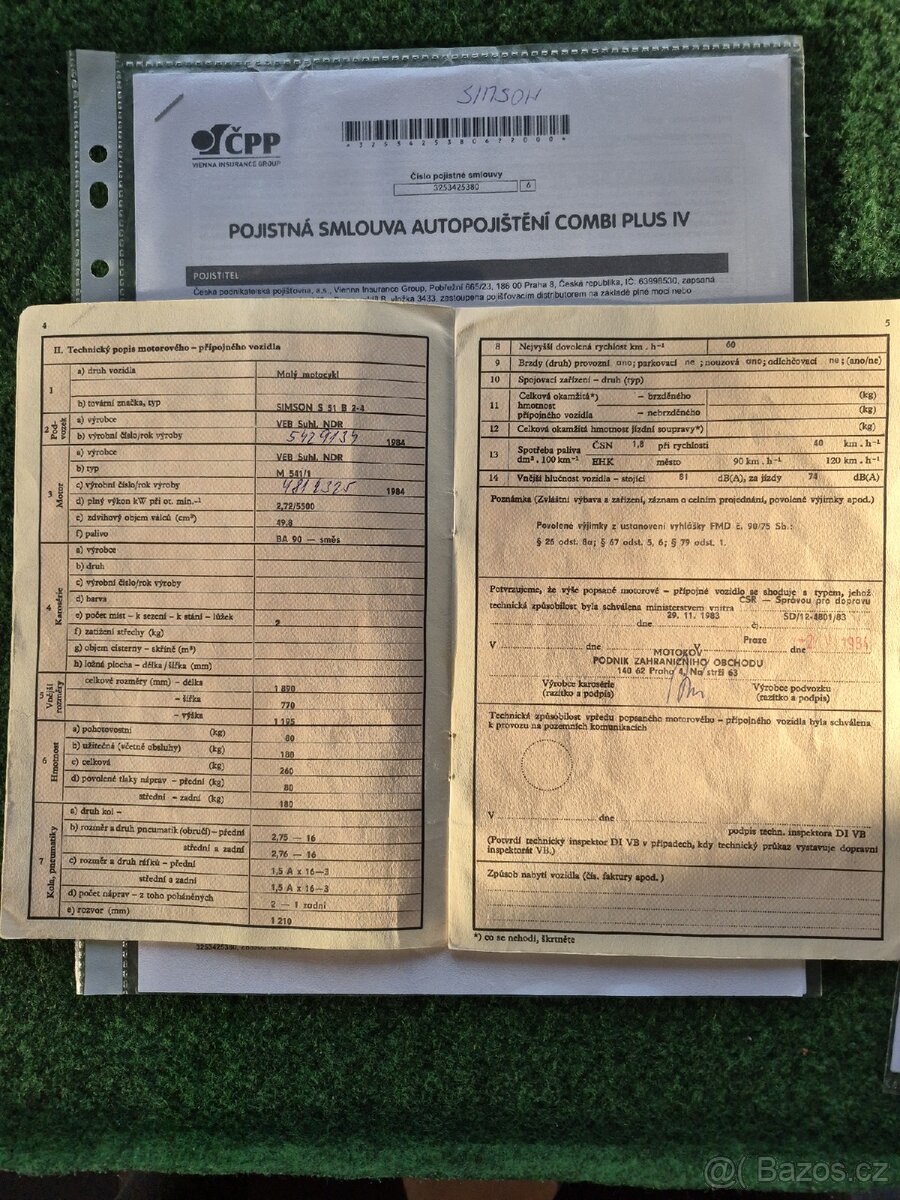 SIMSON
ČPP
VIENNA INSURANCE GROUP
Číslo pojistné smlouvy
3253425380 6
POJISTNÁ SMLOUVA AUTOPOJIŠTĚNÍ COMBI PLUS IV
POJISTITEL
Česká podnikatelská pojišťovna, a.s., Vienna Insurance Group, Pobřežní 665/23, 186 00 Praha 8, Česká republika, IČ: 63998530, zapsaná
vložka 3433, zastoupena pojišťovacím distributorem na základě plné moci nebo
4
II. Technický popis motorového – přípojného vozidla
1
a) druh vozidla Malý motocykl
b) tovární značka, typ SIMSON S 51 B 2-4
2 Podvozek
a) výrobce VEB Suhl, NDR
b) výrobní číslo/rok výroby 5429134 1984
3 Motor
a) výrobce VEB Suhl, NDR
b) typ M 541/1
c) výrobní číslo/rok výroby 4812375 1984
d) plný výkon kW při ot. min.-1 2,72/5500
e) zdvihový objem válců (cm³) 49,8
f) palivo BA 90 — směs
4 Karosérie
a) výrobce
b) druh
c) výrobní číslo/rok výroby
d) barva
e) počet míst – k sezení – k stání – lůžek 2
f) zatížení střechy (kg)
g) objem cisterny – skříně (m³)
h) ložná plocha – délka/šířka (mm)
5 Vnější rozměry
celkové rozměry (mm) – délka 1 890
– šířka 770
– výška 1 195
6 Hmotnost
a) pohotovostní (kg) 80
b) užitečná (včetně obsluhy) (kg) 180
c) celková (kg) 260
d) povolené tlaky náprav – přední (kg) 80
střední – zadní (kg) 180
7 Kola, pneumatiky
a) druh kol –
b) rozměr a druh pneumatik (obručí) – přední 2,75 — 16
střední a zadní 2,75 — 16
c) rozměr a druh ráfků – přední 1,5 A x 16—3
střední a zadní 1,5 A x 16—3
d) počet náprav – z toho poháněných 2 — 1 zadní
e) rozvor (mm) 1 210
5
8 Nejvyšší dovolená rychlost km . h-1 60
9 Brzdy (druh) provozní ano; parkovací ne ; nouzová ano; odlehčovací ne ; (ano/ne)
10 Spojovací zařízení – druh (typ)
11 Celková okamžitá*) – brzděného (kg)
hmotnost
přípojného vozidla – nebrzděného (kg)
12 Celková okamžitá hmotnost jízdní soupravy*) (kg)
13 Spotřeba paliva ČSN 1,8 při rychlosti 40 km . h-1
dm³ . 100 km-1 EHK město 90 km . h-1 120 km . h-1
14 Vnější hlučnost vozidla – stojící 81 dB(A), za jízdy 74 dB(A)
Poznámka (Zvláštní výbava a zařízení, záznam o celním projednání, povolené výjimky apod.)
Povolené výjimky z ustanovení vyhlášky FMD č. 90/75 Sb.:
§ 26 odst. 8a; § 67 odst. 5, 6; § 79 odst. 1.
Potvrzujeme, že výše popsané motorové – přípojné vozidlo se shoduje s typem, jehož
technická způsobilost byla schválena ministerstvem vnitra ČSR — Správou pro dopravu
dne 29. 11. 1983 čj. SD/12-4801/83
V dne V Praze dne 1984
MOTOKOV
PODNIK ZAHRANIČNÍHO OBCHODU
140 62 Praha 4, Na strži 63
Výrobce karosérie Výrobce podvozku
(razítko a podpis) (razítko a podpis)
Technická způsobilost vpředu popsaného motorového – přípojného vozidla byla schválena
k provozu na pozemních komunikacích
V dne
podpis techn. inspektora DI VB
(Potvrdí technický inspektor DI VB v případech, kdy technický průkaz vystavuje dopravní
inspektorát VB.)
Způsob nabytí vozidla (čís. faktury apod.)
*) co se nehodí, škrtněte
@( Bazos.cz